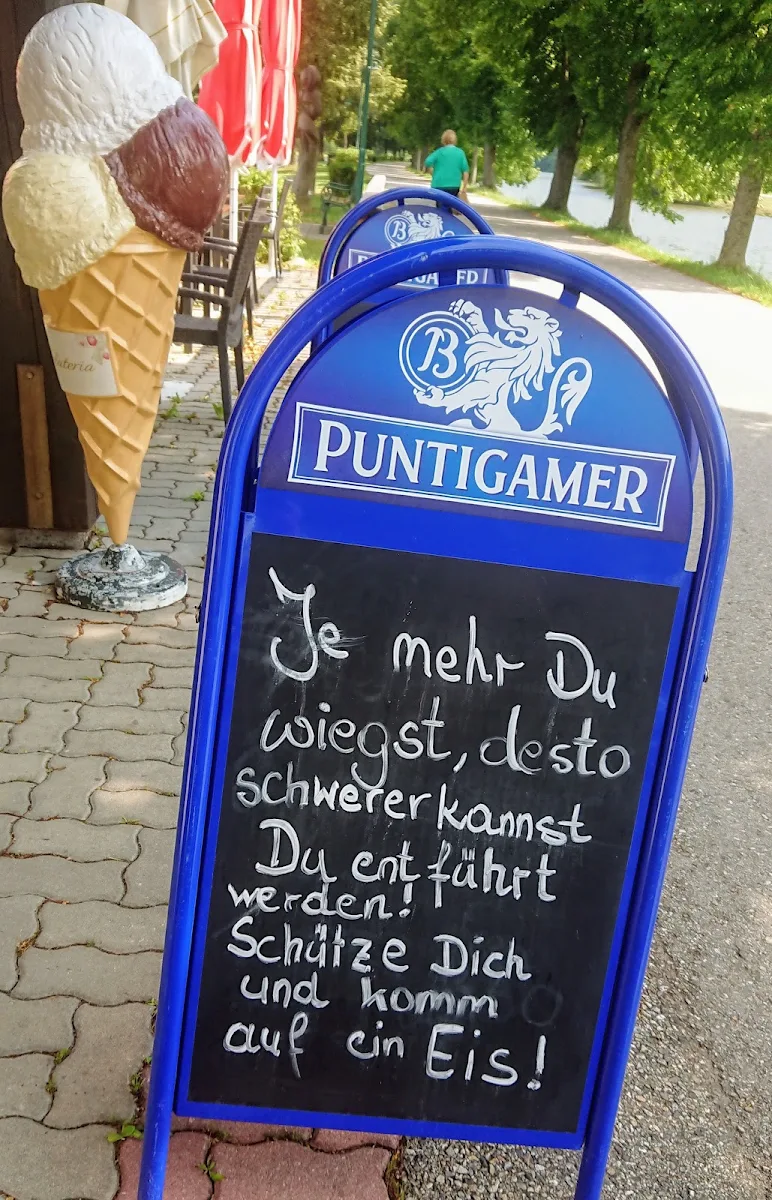 B
PUNTIGAMER
Je mehr Du
wiegst, desto
schwerer kannst
Du entführt
werden!
Schütze Dich
und komm
auf ein Eis!